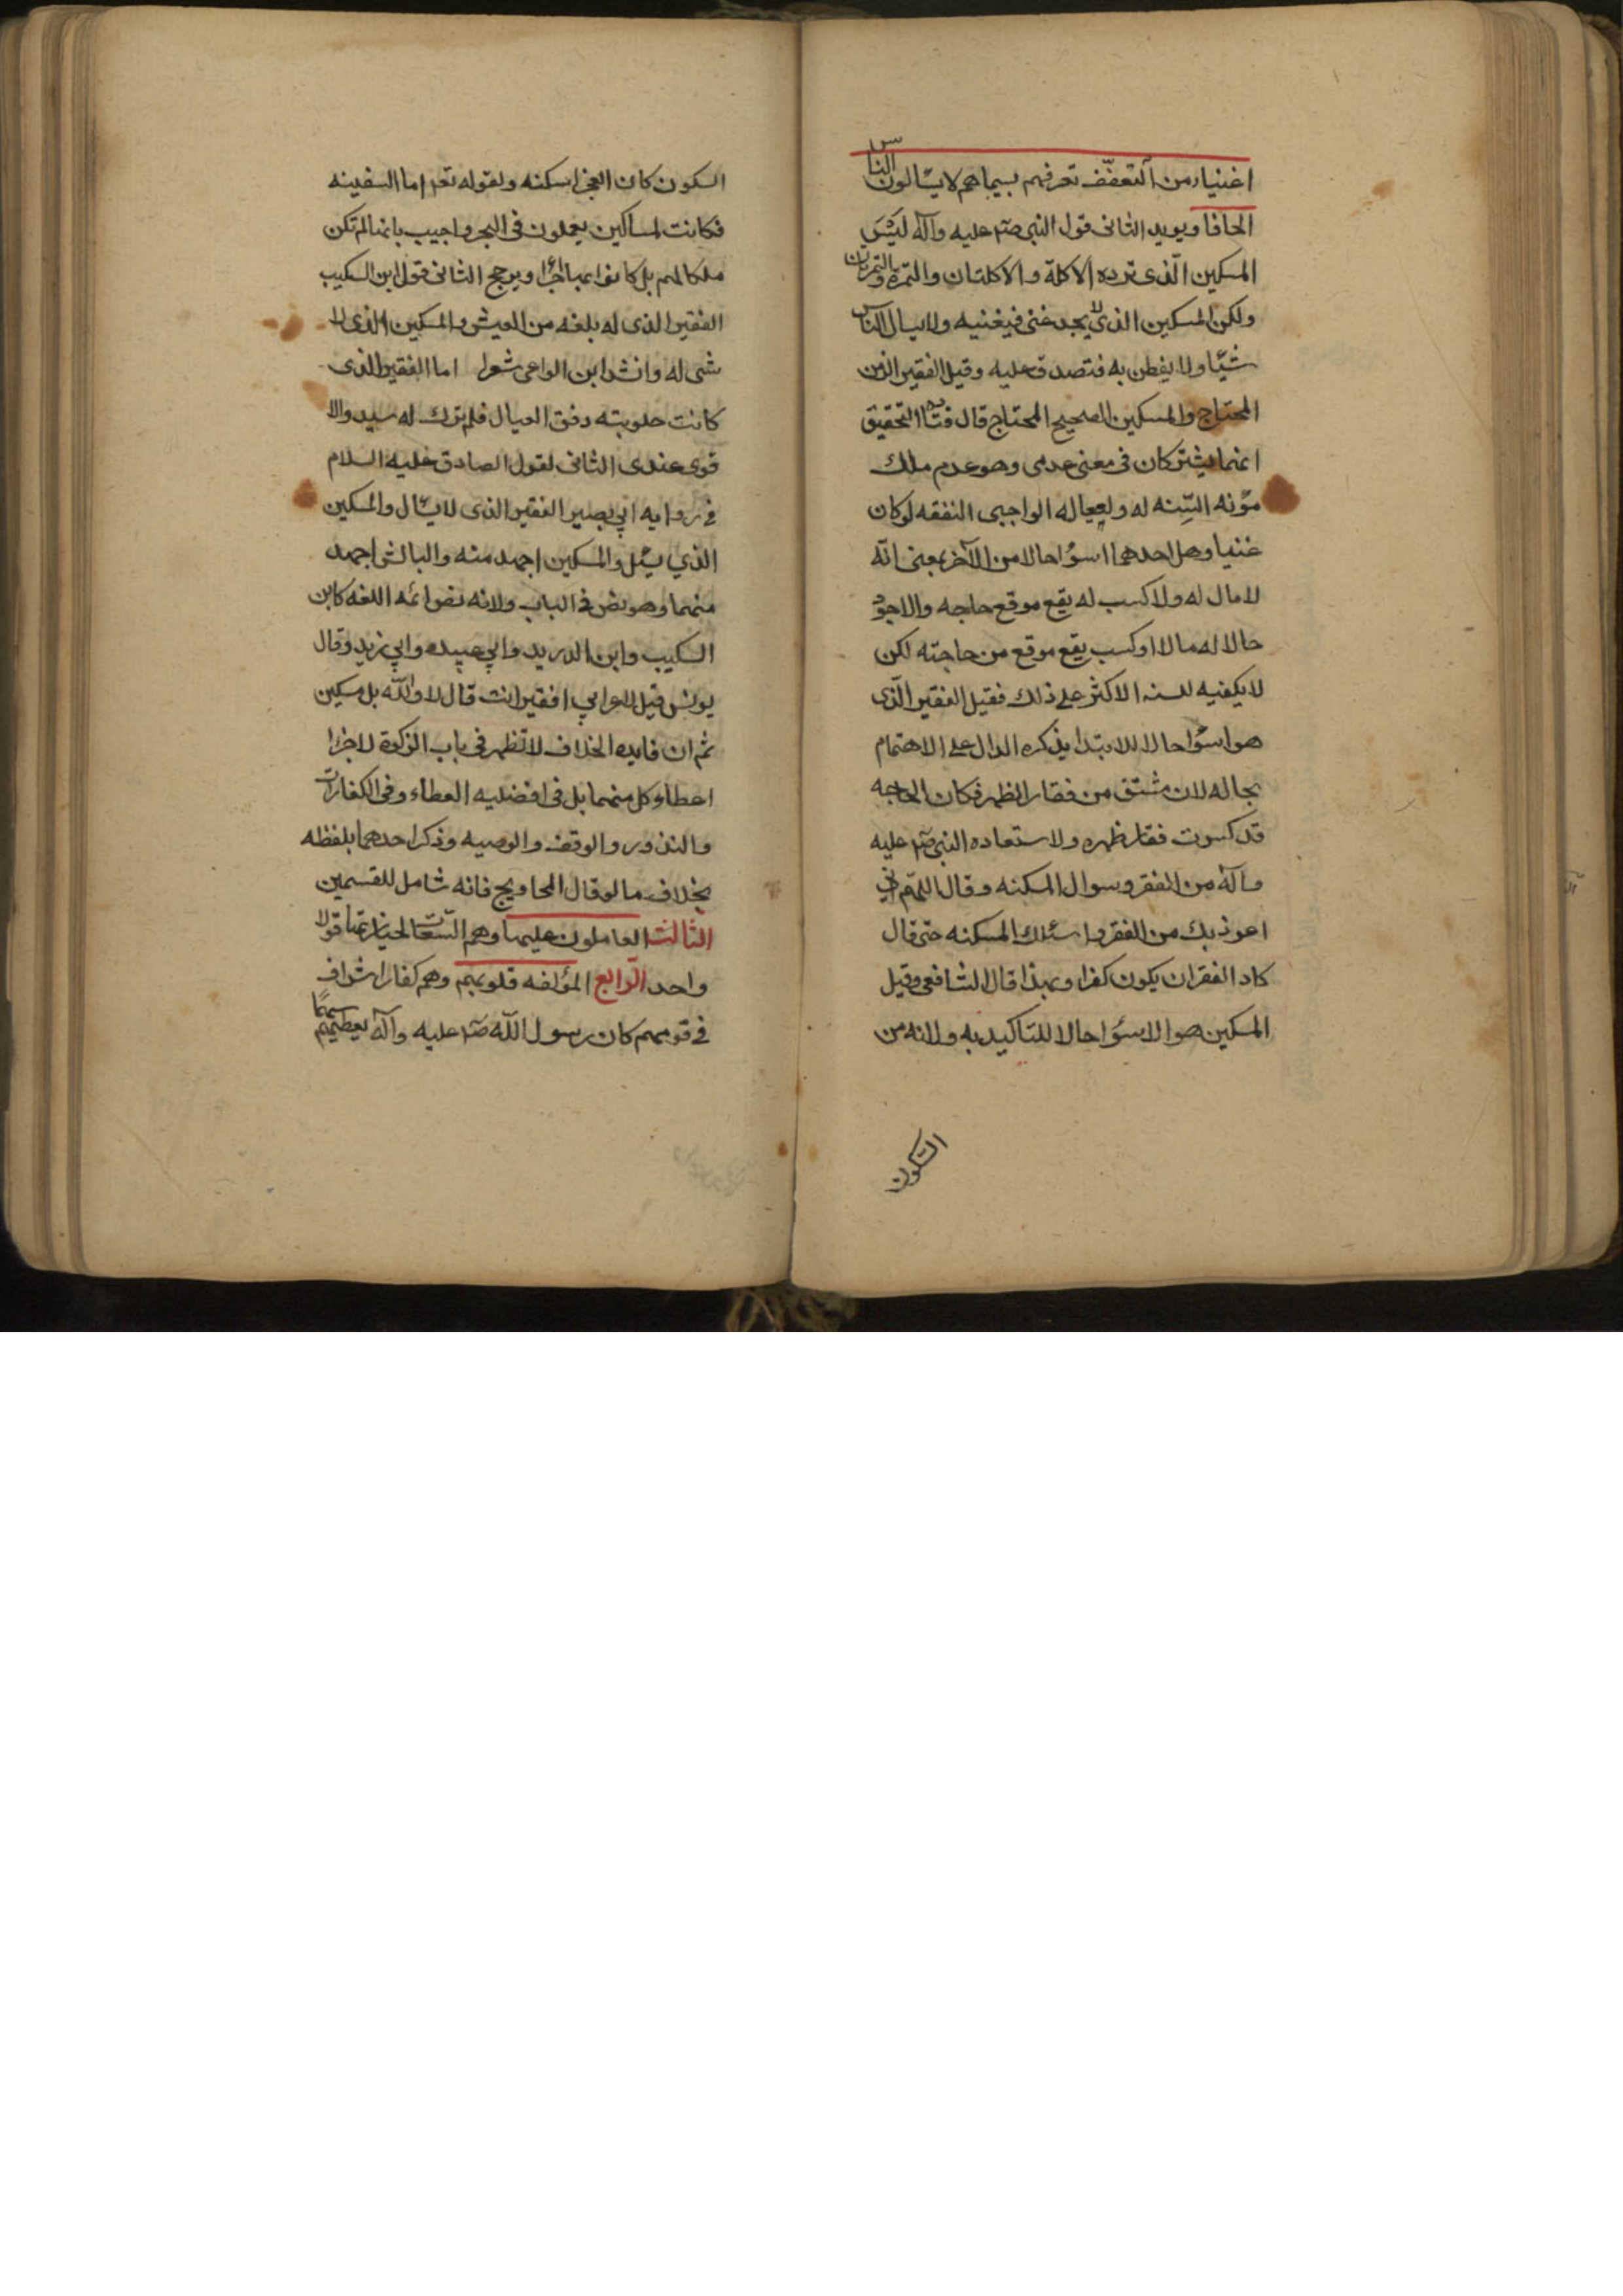 اغنياء من التعفّف تعرفهم بسيماهم لا يسّالون الناس
الحافا ويويد الثانى قول النبى صلّم عليه وآله ليسَ
المسكين الّذى ترده الاكلة والاكلتان والتمرة والتمرتان
ولكن المسكين الذى لا يجد غنى فيغنيه ولا يسال الناس
شيّا ولا يفطن به فتصدق عليه وقيل الفقير الزمن
المحتاج والمسكين الصحيح المحتاج قال قتاده التحقيق
انهما يشتركان فى معنى عدمى وهو عدم ملك
مؤنه السّنه له ولعياله الواجبى النفقه لو كان
غنيا وهل احدهما اسوُا حالا من الآخر بمعنى انّه
لا مال له ولا كسب له يقع موقع حاجه والاجود
حالا له مالا او كسب يقع موقع من حاجته لكن
لا يكفيه لسنه الاكثر على ذلك فقيل الفقير الّذى
هو اسوُا حالا للابتدا يذكره الدال على الاهتمام
بحاله لان مشتق من فقار الظهر فكان الحاجه
قد كسرت فقار ظهره ولاستعاده النبى صلّم عليه
وآله من الفقر وسوال المسكنه وقال اللهمّ انى
اعوذ بك من الفقر واسئلك المسكنه حتى قال
كاد الفقر ان يكون كفرا وبهذا قال الشافعى وقيل
المسكين هو الاسوُا حالا للتاكيد به ولانه من
السكون
السكون كان العجز اسكنه ولقوله تعر اما السفينه
فكانت لمساكين يعملون فى البحر واجيب بانها لم تكن
ملكا لهم بل كانوا بها اجرا ويرجح الثانى قول ابن السكيب
الفقير الذى له بلغه من العيش والمسكين الذى لا
شى له وانشد ابن الراعى شعرا اما الفقير الذى
كانت حلوبته وفق العيال فلم يترك له سبد والا
قوى عندى الثانى لقول الصادق عليه السلام
فى روايه ابي بصير الفقير الذى لا يسّال والمسكين
الذي يسئل والمسكين اجهد منه والبالش اجهد
منهما وهو نص فى الباب ولانه نص ائمه اللغه كابن
السكيب وابن الدريد وابي عبيده وابي زيد وقال
يونس قيل لاعرابي افقير انت قال لا والله بل مسكين
ثم ان فايده الخلاف لا تظهر فى باب الزكوة لاجزا
اعطاء كل منهما بل فى افضليه العطاء وفى الكفارات
والنذور والوقف والوصيه وذكر احدهما بلفظه
بخلاف ما لو قال المحاويج فانه شامل للقسمين
الثالث العاملون عليها وهم السّعات لجبايتها قولا
واحد الرابع المؤلفه قلوبهم وهم كفار اشراف
فى قومهم كان رسول الله صلّم عليه وآله يعطيهم سهمًا